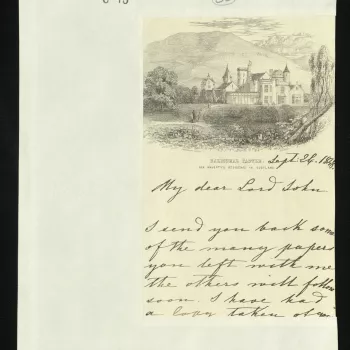 BALMORAL CASTLE.
HER MAJESTYS RESIDENCE IN SCOTLAND
Sept. 26. 1848.
My dear Lord John
I send you back some
of the many papers
you left with me
the others will follow
soon. I have had
a copy taken of